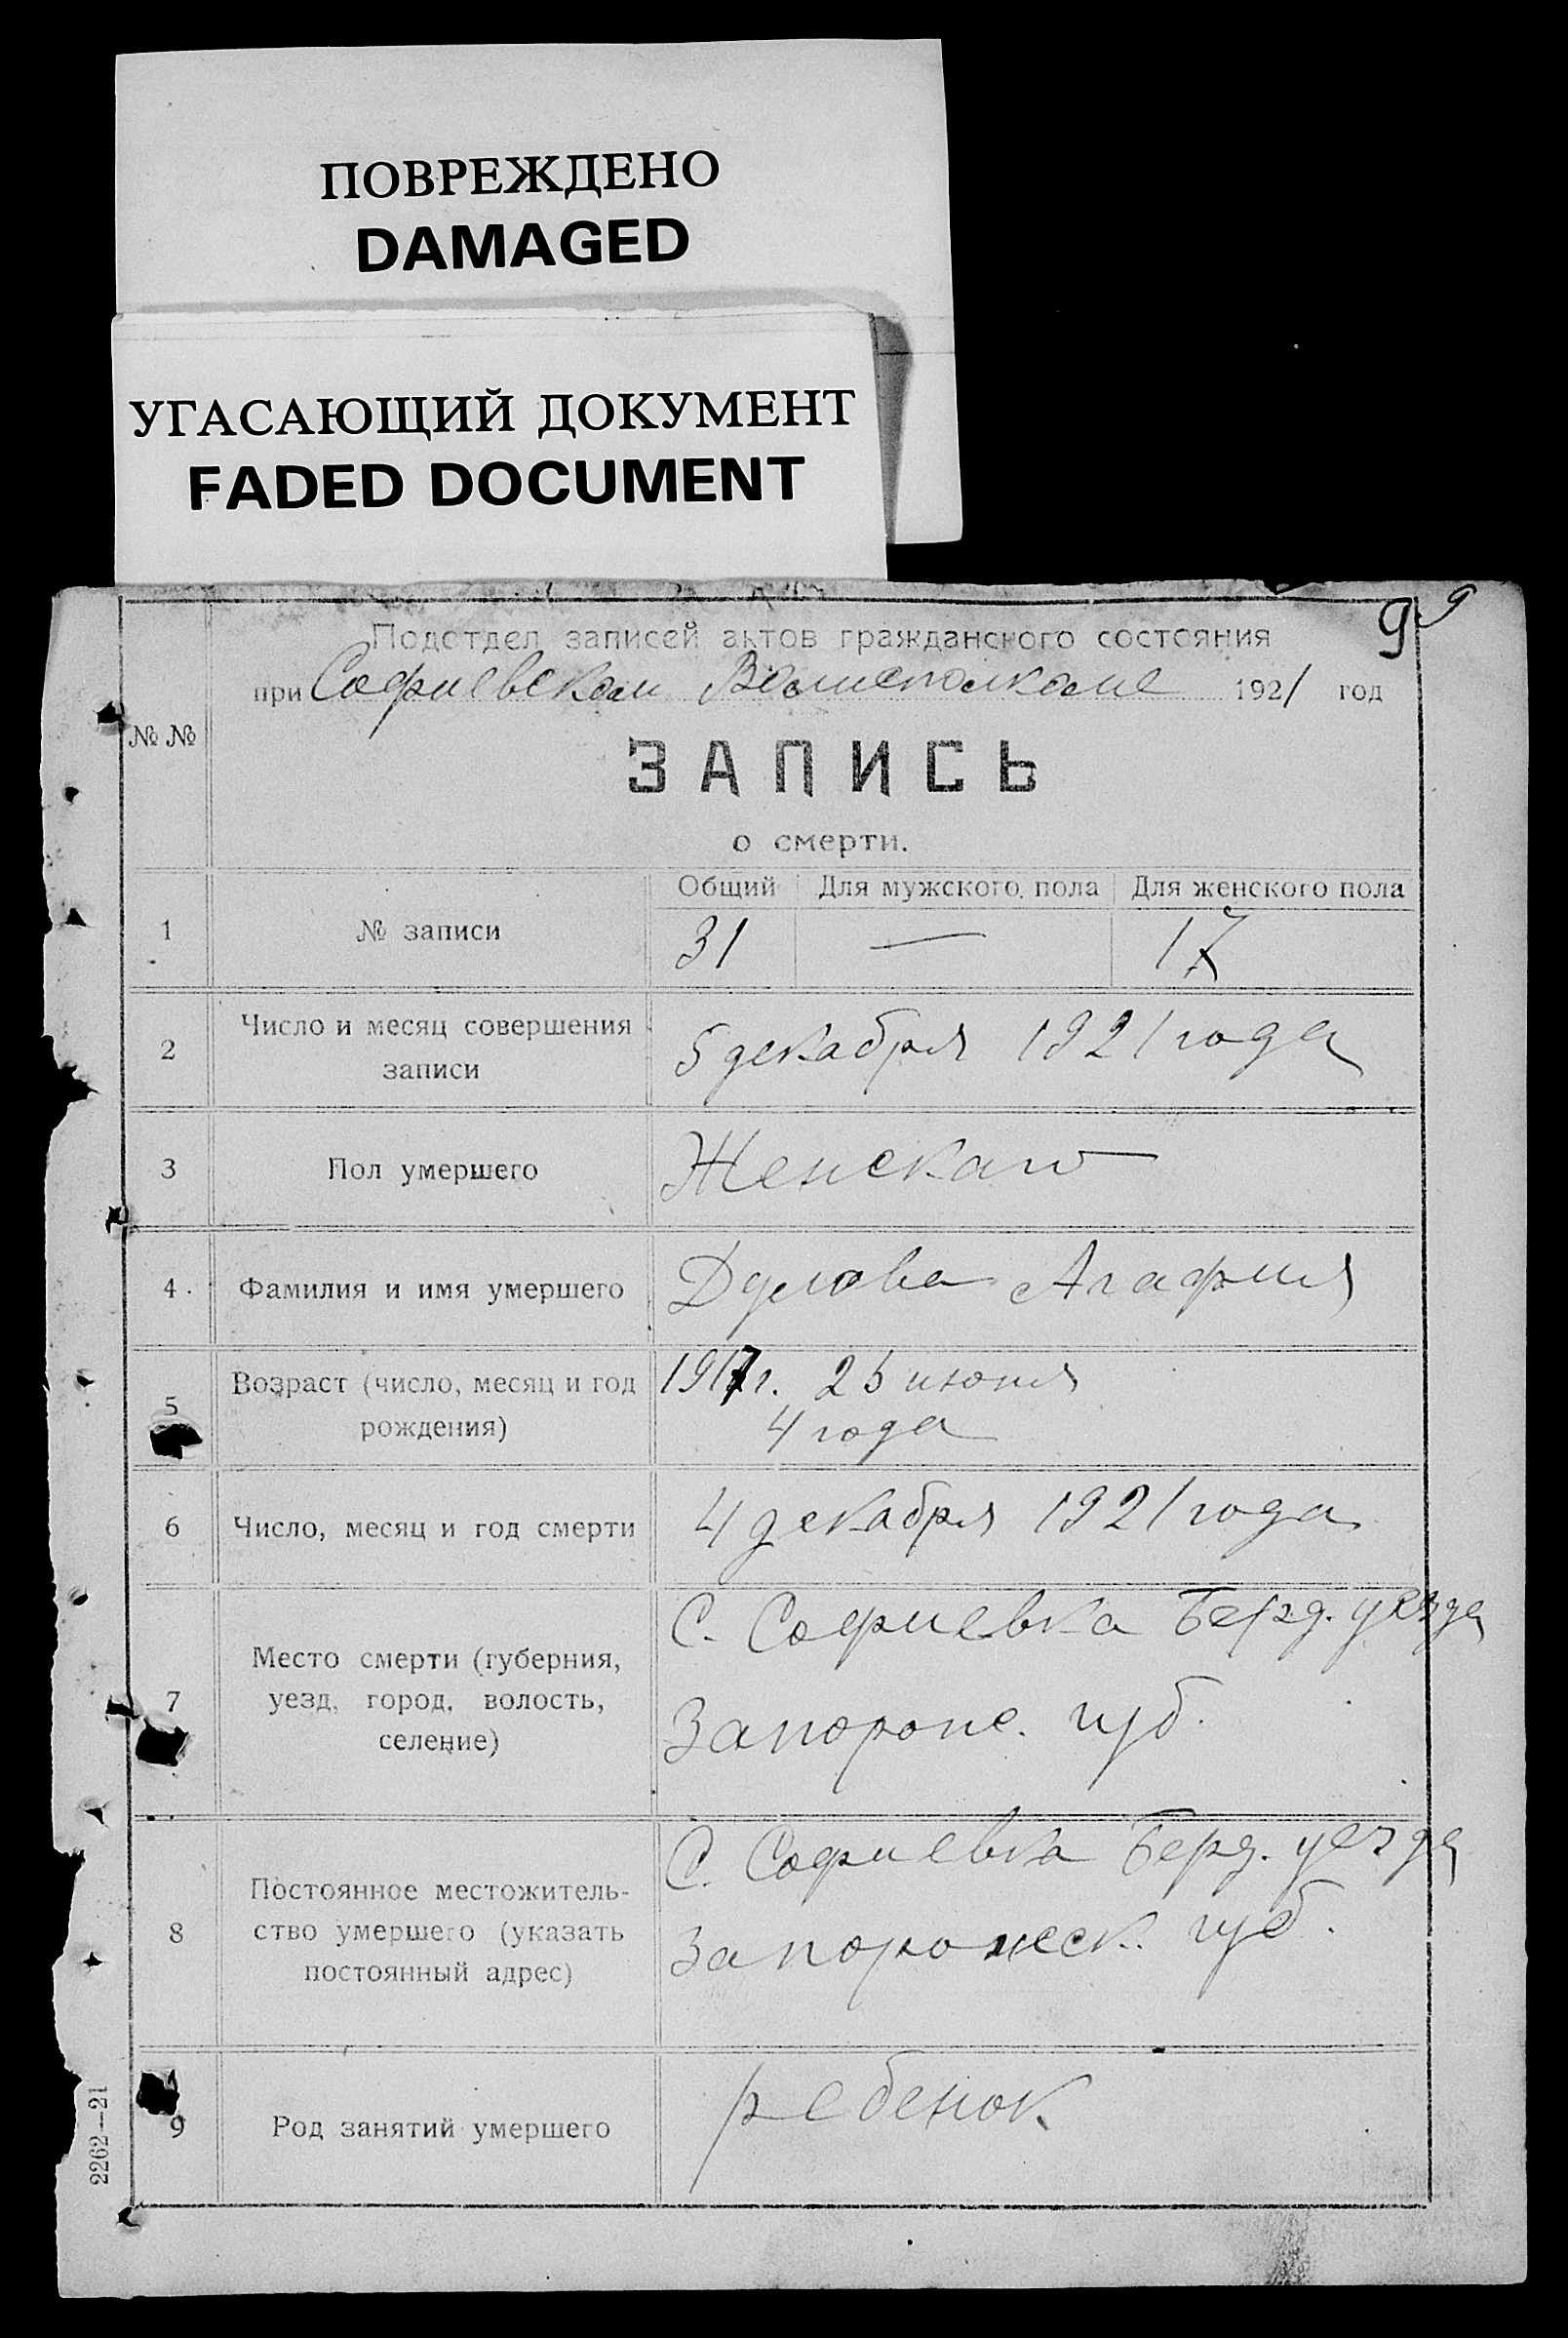 ПОВРЕЖДЕНО
DAMAGED
УГАСАЮЩИЙ ДОКУМЕНТ
FADED DOCUMENT
9 9
Подотдел записей актов гражданского состояния
при Софиевском Волисполкоме 1921 год
№ №
ЗАПИСЬ
о смерти.
Общий Для мужского пола Для женского пола
1 № записи 31 — 17
2 Число и месяц совершения
записи
5 декабря 1921 года
3 Пол умершего Женскаго
4. Фамилия и имя умершего Агафия
5 Возраст (число, месяц и год
рождения)
1917 г. 25
4 года
6 Число, месяц и год смерти 4 декабря 1921 года
7 Место смерти (губерния,
уезд, город, волость,
селение)
С. Софиевка Берд. уезда
губ.
8 Постоянное местожитель-
ство умершего (указать
постоянный адрес)
С. Софиевка Берд. уезда
Запорожск. губ.
9 Род занятий умершего ребенок
2262—21